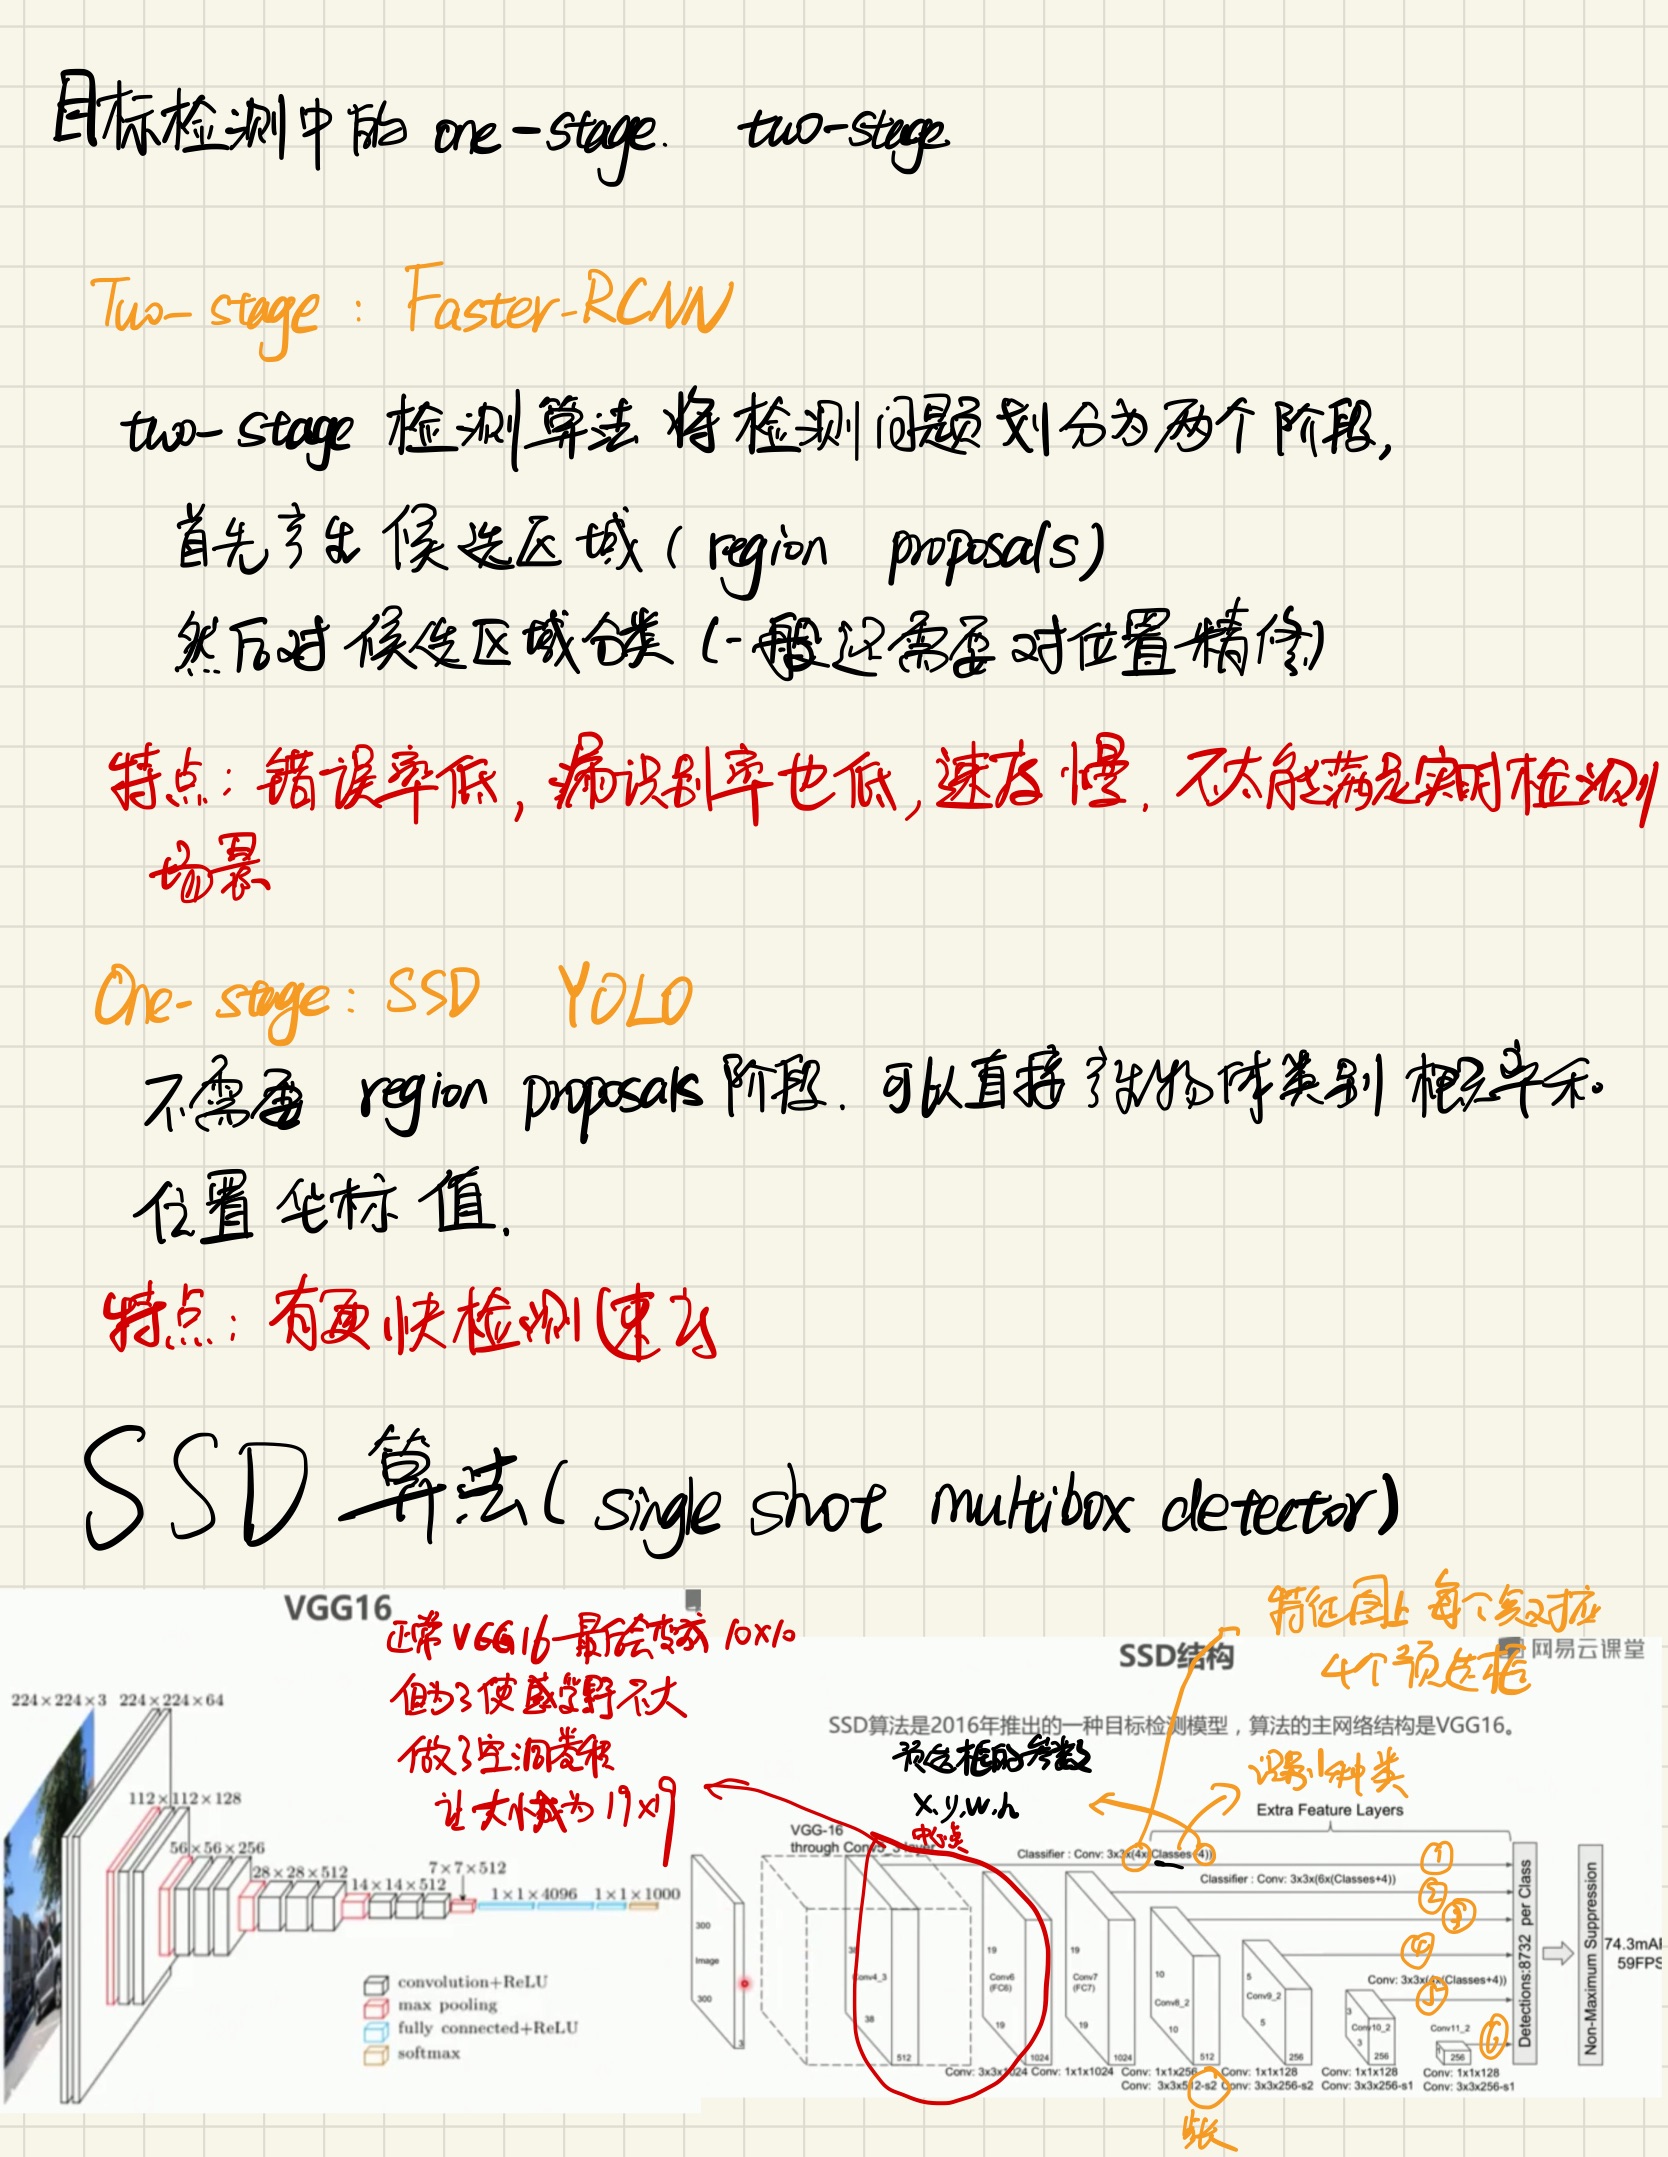 目标检测中的 one-stage. two-stage
Two-stage : Faster-RCNN
two-stage 检测算法 将检测问题划分为两个阶段,
首先产生 候选区域 ( region proposals )
然后对候选区域分类 (一般还需要对位置精修)
特点: 错误率低, 漏识别率也低, 速度慢. 不太能满足实时检测
场景
One-stage: SSD YOLO
不需要 region proposals 阶段. 可以直接产生物体类别概率和
位置坐标值.
特点: 有更快检测速度
SSD 算法 ( single shot multibox detector )
VGG16
正常VGG16 最后会变成 10x10
但为了使感受野不大
做了空洞卷积
让大小成为 19x19
224×224×3 224×224×64
112×112×128
56×56×256
28×28×512
14×14×512
7×7×512
1×1×4096 1×1×1000
convolution+ReLU
max pooling
fully connected+ReLU
softmax
特征图上每个点对应
4个预选框
网易云课堂
SSD结构
SSD算法是2016年推出的一种目标检测模型，算法的主网络结构是VGG16。
预选框的参数
x.y.w.h
中心点
识别种类
Extra Feature Layers
VGG-16
through Conv5_3 layer
Classifier : Conv: 3x3x(4x(Classes+4))
Classifier : Conv: 3x3x(6x(Classes+4))
Conv: 3x3x(4x(Classes+4))
① ② ③ ④ ⑤ ⑥
300
Image
300
3
38
Conv4_3
38
512
19
Conv6
(FC6)
19
1024
19
Conv7
(FC7)
19
1024
10
Conv8_2
10
512
5
Conv9_2
5
256
3
Conv10_2
3
256
Conv11_2
1
256
Detections:8732 per Class
Non-Maximum Suppression
74.3mAP
59FPS
Conv: 3x3x1024 Conv: 1x1x1024 Conv: 1x1x256 Conv: 1x1x128 Conv: 1x1x128 Conv: 1x1x128
Conv: 3x3x512-s2 Conv: 3x3x256-s2 Conv: 3x3x256-s1 Conv: 3x3x256-s1